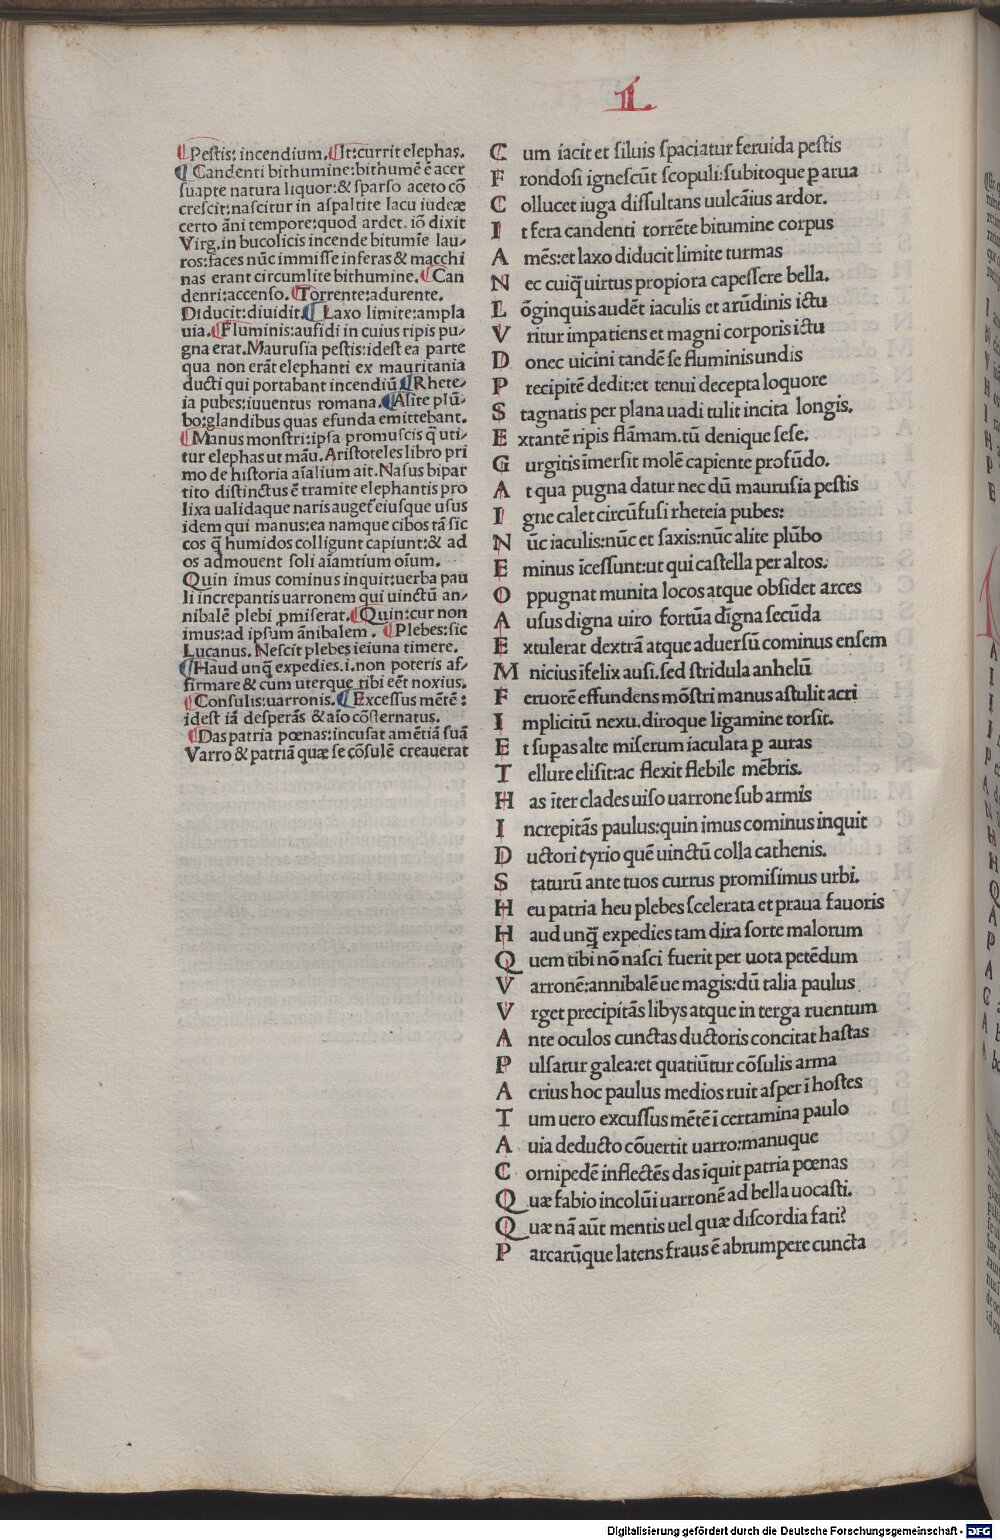 L
¶Pestis: incendium. ¶It: currit elephas.
¶Candenti bithumine: bithumē ē acer
suapte natura liquor: & sparso aceto cō
crescit: nascitur in aspaltite lacu iudeæ
certo āni tempore: quod ardet. iō dixit
Virg. in bucolicis incende bitumie lau-
ros: faces nūc immisse inferas & macchi
nas erant circumlite bithumine. ¶Can
denri: accenso. ¶Torrente: adurente.
Diducit: diuidit. ¶Laxo limite: ampla
uia. ¶Fluminis: aufidi in cuius ripis pu-
gna erat. Maurusia pestis: idest ea parte
qua non erāt elephanti ex mauritania
ducti qui portabant incendiū ¶Rhete-
ia pubes: iuuentus romana. ¶Alite plū-
bo: glandibus quas efunda emittebant.
¶Manus monstri: ipsa promuscis q̄ uti-
tur elephas ut māu. Aristoteles libro pri
mo de historia aīalium ait. Nasus bipar
tito distinctus ē tramite elephantis pro
lixa ualidaque naris auget eiusque usus
idem qui manus: ea namque cibos tā sic
cos q̄ humidos colligunt capiunt: & ad
os admouent soli aīamtium oīum.
Quin imus cominus inquit: uerba pau
li increpantis uarronem qui uinctū an-
nibalē plebi ꝓmiserat. ¶Quin: cur non
imus: ad ipsum ānibalem. ¶Plebes: sic
Lucanus. Nescit plebes ieiuna timere.
¶Haud unq̄ expedies. i. non poteris af-
firmare & cum uterque tibi eēt noxius.
¶Consulis: uarronis. ¶Excessus mētē:
idest iā desperās & aīo cōsternatus.
¶Das patria pœnas: incusat amētiā suā
Varro & patriā quæ se cōsulē creauerat
C um iacit et siluis spaciatur feruida pestis
F rondosi ignescūt scopuli: subitoque ꝑ arua
C ollucet iuga dissultans uulcāius ardor.
I t fera candenti torrēte bitumine corpus
A mēs: et laxo diducit limite turmas
N ec cuiq̄ uirtus propiora capessere bella.
L ōginquis audēt iaculis et arūdinis ictu
V ritur impatiens et magni corporis ictu
D onec uicini tandē se fluminis undis
P recipitē dedit: et tenui decepta loquore
S tagnatis per plana uadi tulit incita longis.
E xtantē ripis flāmam. tū denique sese.
G urgitis īmersit molē capiente profūdo.
A t qua pugna datur nec dū maurusia pestis
I gne calet circūfusi rheteia pubes:
N ūc iaculis: nūc et saxis: nūc alite plūbo
E minus īcessunt: ut qui castella per altos.
O ppugnat munita locos atque obsidet arces
A usus digna uiro fortūa dīgna secūda
E xtulerat dextrā atque aduersū cominus ensem
M nicius īfelix ausi. sed stridula anhelū
F eruorē effundens mōstri manus astulit acri
I mplicitū nexu. diroque ligamine torsit.
E t supas alte miserum iaculata ꝑ auras
T ellure elisit: ac flexit flebile mēbris.
H as īter clades uiso uarrone sub armis
I ncrepitās paulus: quin imus cominus inquit
D uctori tyrio quē uinctū colla cathenis.
S taturū ante tuos currus promisimus urbi.
H eu patria heu plebes scelerata et praua fauoris
H aud unq̄ expedies tam dira sorte malorum
Q uem tibi nō nasci fuerit per uota petēdum
V arronē: annibalē ue magis: dū talia paulus
V rget precipitās libys atque in terga ruentum
A nte oculos cunctas ductoris concitat hastas
P ulsatur galea: et quatiūtur cōsulis arma
A crius hoc paulus medios ruit asper ī hostes
T um uero excussus mētē ī certamina paulo
A uia deducto cōuertit uarro: manuque
C ornipedē inflectēs das īquit patria pœnas
Q uæ fabio incolūi uarronē ad bella uocasti.
Q uæ nā aūt mentis uel quæ discordia fati?
P arcarūque latens fraus ē abrumpere cuncta
Digitalisierung gefördert durch die Deutsche Forschungsgemeinschaft - DFG